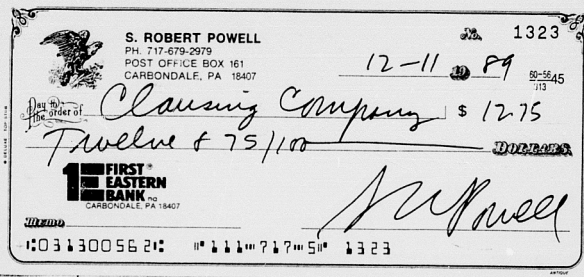 S. ROBERT POWELL
PH. 717-679-2979
POST OFFICE BOX 161
CARBONDALE, PA 18407
No. 1323
12-11 19 89
60-56 45
313
Pay to the order of Clausing Company $ 12.75
Twelve & 75/100 DOLLARS
1 FIRST EASTERN BANK na
CARBONDALE, PA 18407
Memo
S R Powell
⑆031300562⑆ ⑈111⑉717⑉5⑈ 1323
ANTIQUE